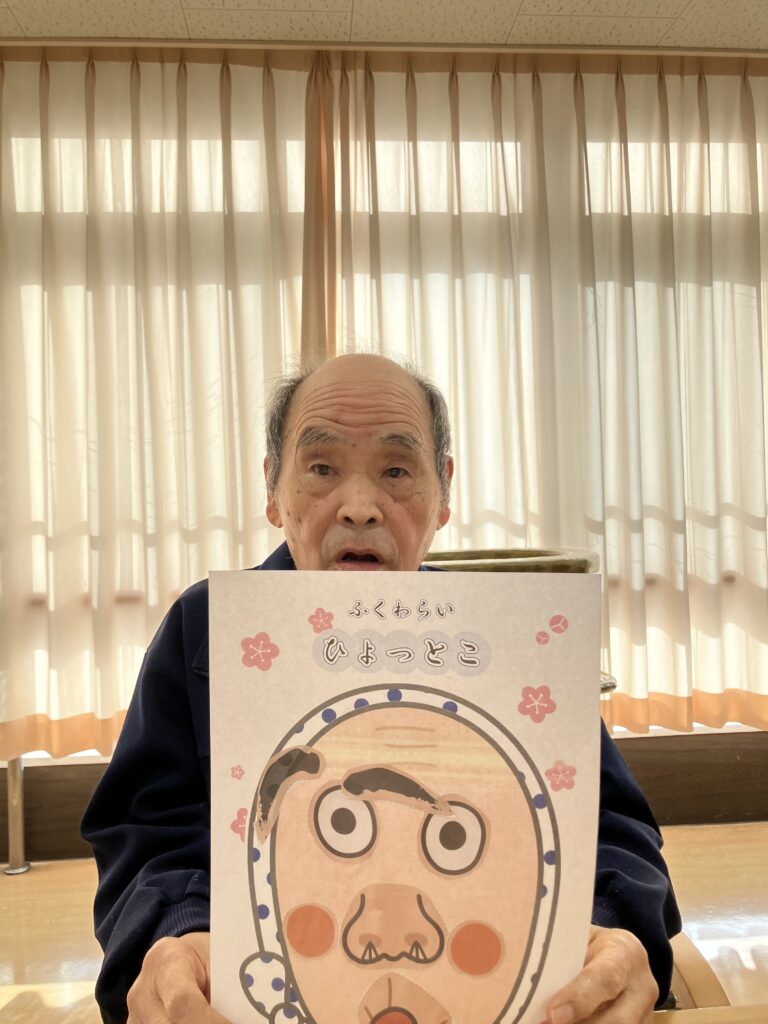 ふくわらい
ひょっとこ